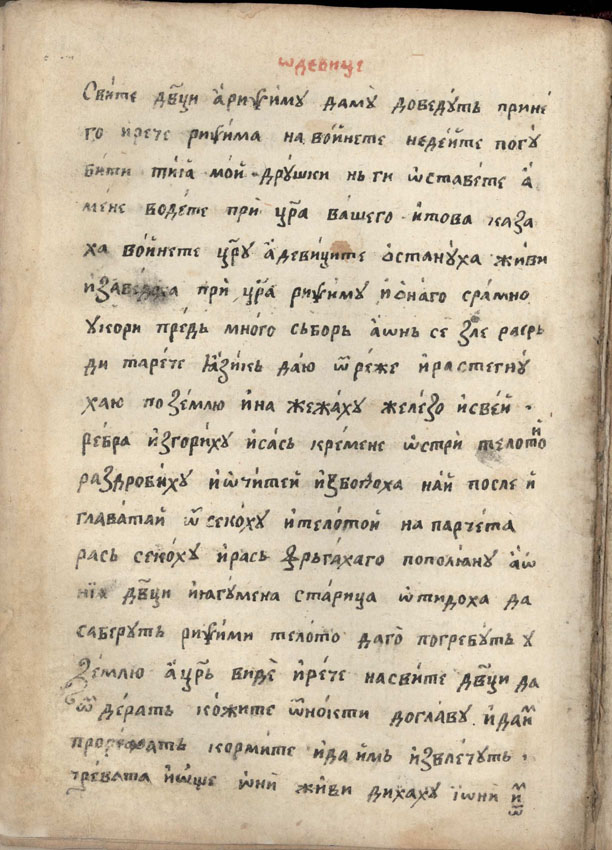 ѡдевице
Сви́те дв҃ци а҆риѱи́му даму̀ доведꙋ́ть прине́
го и҆рече риѱи́ма на вои́нете недеи҆те погꙋ́
бити тїѧ̀ мои̑ дрꙋ́шки нь ги ѡ҆ставе́те а҆
ме́не воде́те при҆ цр҃ѧ ва́шего и҆това каза
ха вои́нете цр҃ꙋ а҆деви́ците о҆станꙋ́ха жи́ви
и҆заведоха при҆ цр҃ѧ риѱи́мꙋ и҆о҆на́го сра́мно
ꙋкори пре́дь мно́го сьборь а҆ѡнь се ꙁле расрь
ди таре́че ѩ҆ꙁи́кь да́ю ѿре́же и҆растегнꙋ́
хаю по ꙁе́млю и҆на жежа́хꙋ желе́ꙁо и҆свеи́
ребра и҆ꙁгори́хꙋ и҆са́сь кре́мене ѡ҆стри̑ тело́тои̑
раꙁдроби́хꙋ и҆ѡ҆чи́теи̑ и҆ꙁбодоха наи̑ после и҆
глава́таи̑ ѿ секо́хꙋ и҆тело́тои̑ на парче́та
рась секо́хꙋ и҆рась фрьга́хаго пополю́анꙋ а҆ѡ҆
нїѧ дв҃ци и҆юа҆гꙋ́мена ста́рица ѡ҆тидоха да
саберꙋть риѱи́ми те́лото даго̀ погребꙋ́ть ꙋ
ꙁе́млю а҆цр҃ь видѐ и҆ре́че насви́те дв҃ци да
ѿ де́рать ко́жите ѿно́кти доглавꙋ̀ и҆даи҆м
кормите и҆да и҆мь и҆ꙁвле́тꙋть
тре́вата и҆ѡ҆ще ѡ҆ни̑ жи́ви дихахꙋ їѡ҆ни҆